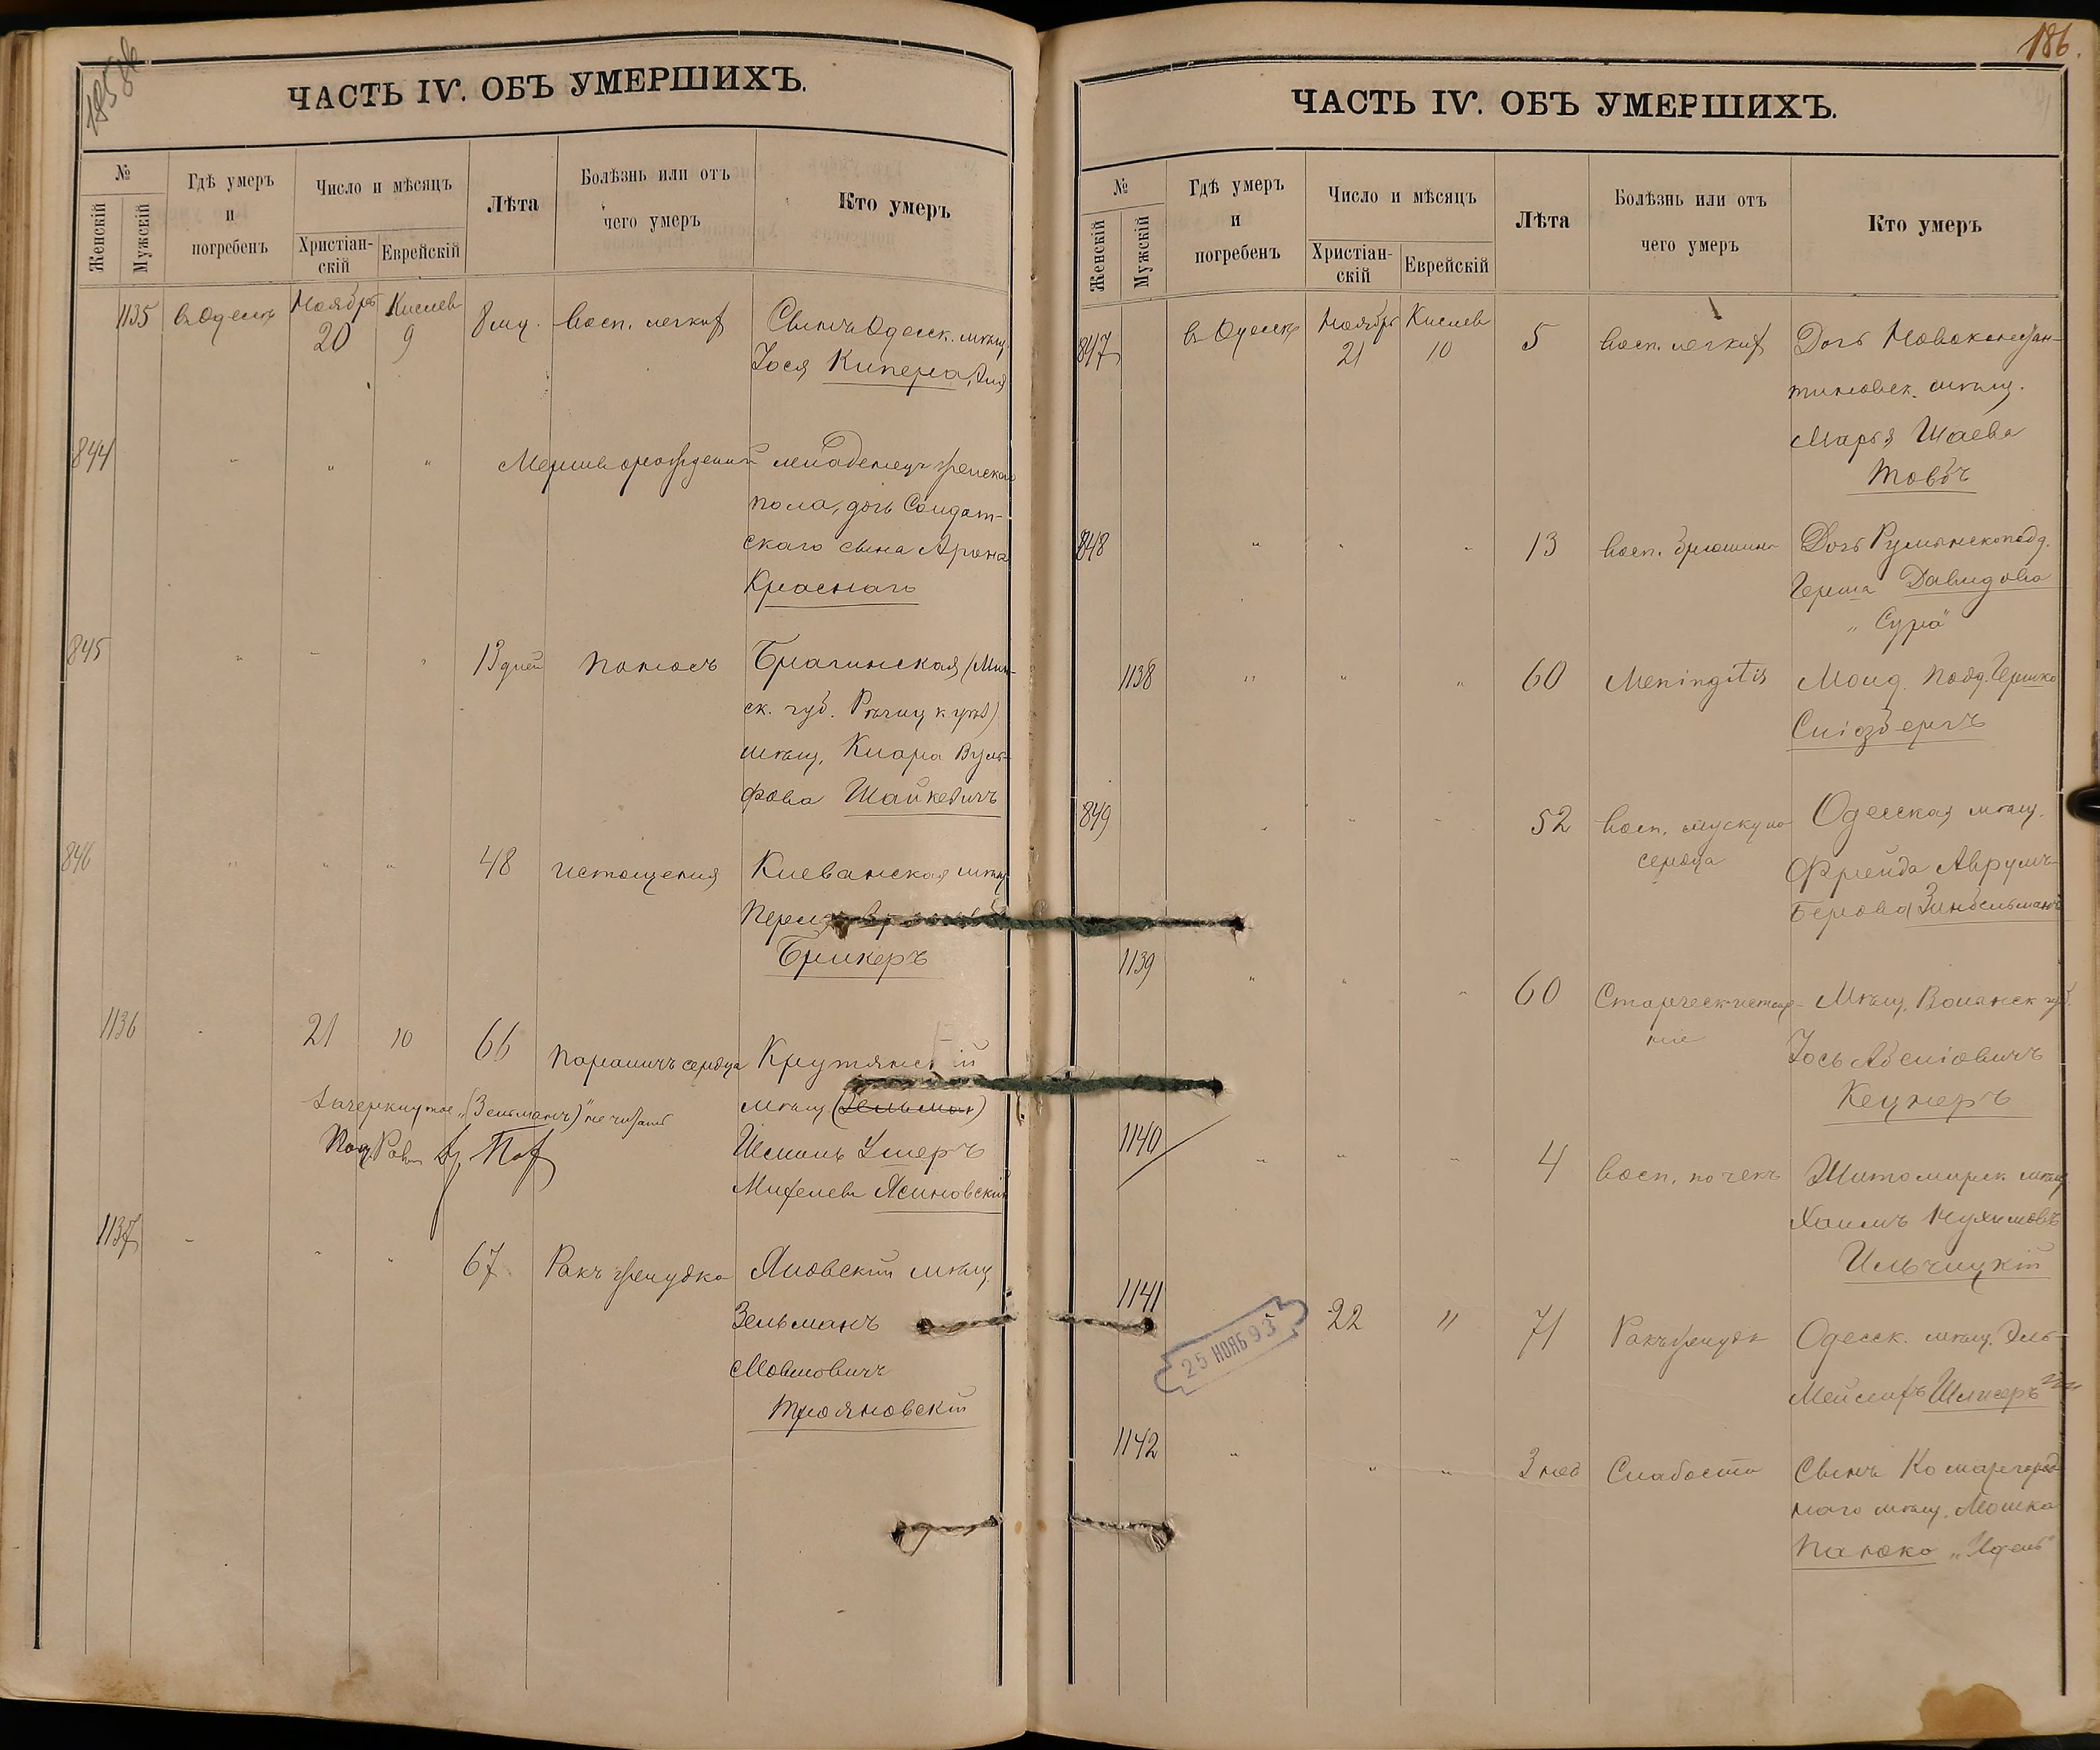 185 об
ЧАСТЬ IV. ОБЪ УМЕРШИХЪ.
№
Женскій
Мужскій
Гдѣ умеръ
и
погребенъ
Число и мѣсяцъ
Христіан-
скій
Еврейскій
Лѣта
Болѣзнь или отъ
чего умеръ
Кто умеръ
1135 въ Одессѣ Ноябрь 20 Кислев 9 8 мц. Восп. легких Сынъ Одесск. мѣщ.
Іося Кипера,
844 " " " Мертворожденный младенецъ женскаго
пола, дочь Солдат-
скаго сына Арона
Краснаго
845 " " " 13 дней Поносъ Брагинская (Мин-
ск. губ. Рѣчицк. уѣз)
мѣщ. Клара Вуль-
фова Шайкевичъ
846 " " " 48 истощения Клеванская мѣщ
Перля
Брикеръ
1136 " 21 10 66 Параличъ сердца Крутянскій
мѣщ (Зельман)
Шмиль Умеръ
Михелев Ясиновскій
Зачеркнутое „(Зельманъ)" не читать
1137 " " " 67 Ракъ желудка Яновскій мѣщ
Зельманъ
Мовшовичъ
Трояновскій
186.
ЧАСТЬ IV. ОБЪ УМЕРШИХЪ.
№
Женскій
Мужскій
Гдѣ умеръ
и
погребенъ
Число и мѣсяцъ
Христіан-
скій
Еврейскій
Лѣта
Болѣзнь или отъ
чего умеръ
Кто умеръ
847 въ Одессѣ Ноябрь 21 Кислев 10 5 Восп. легких Дочь Новоконстан-
тиновск. мѣщ.
Марья Шаева
Товбъ
848 " " " 13 Восп. брюшины Дочь Румынскоподд.
Герша Давидова
„Сура"
1138 " " " 60 Meningitis Молд. подд. Гершко
849 " " " 52 Восп. мускула
сердца
Одесская мѣщ.
Фрейда Аврумъ-
Берова Зинбельманъ
1139 " " " 60 Старческ. истоще-
ніе
Мѣщ. Волынск губ.
Іось Абелiовичъ
Кецнеръ
1140 " " " 4 Восп. почекъ Житомирск. мѣщ
Хаимъ Нухимовъ
Ильчицкій
1141 " 22 11 71 Ракъ желудк Одесск. мѣщ. Эль-
Мейлихъ Шлисеръ
25 НОЯБ 93
1142 " " " 3 нед Слабости Сынъ Комаргород-
наго мѣщ. Мошка
Панюко „Идель"